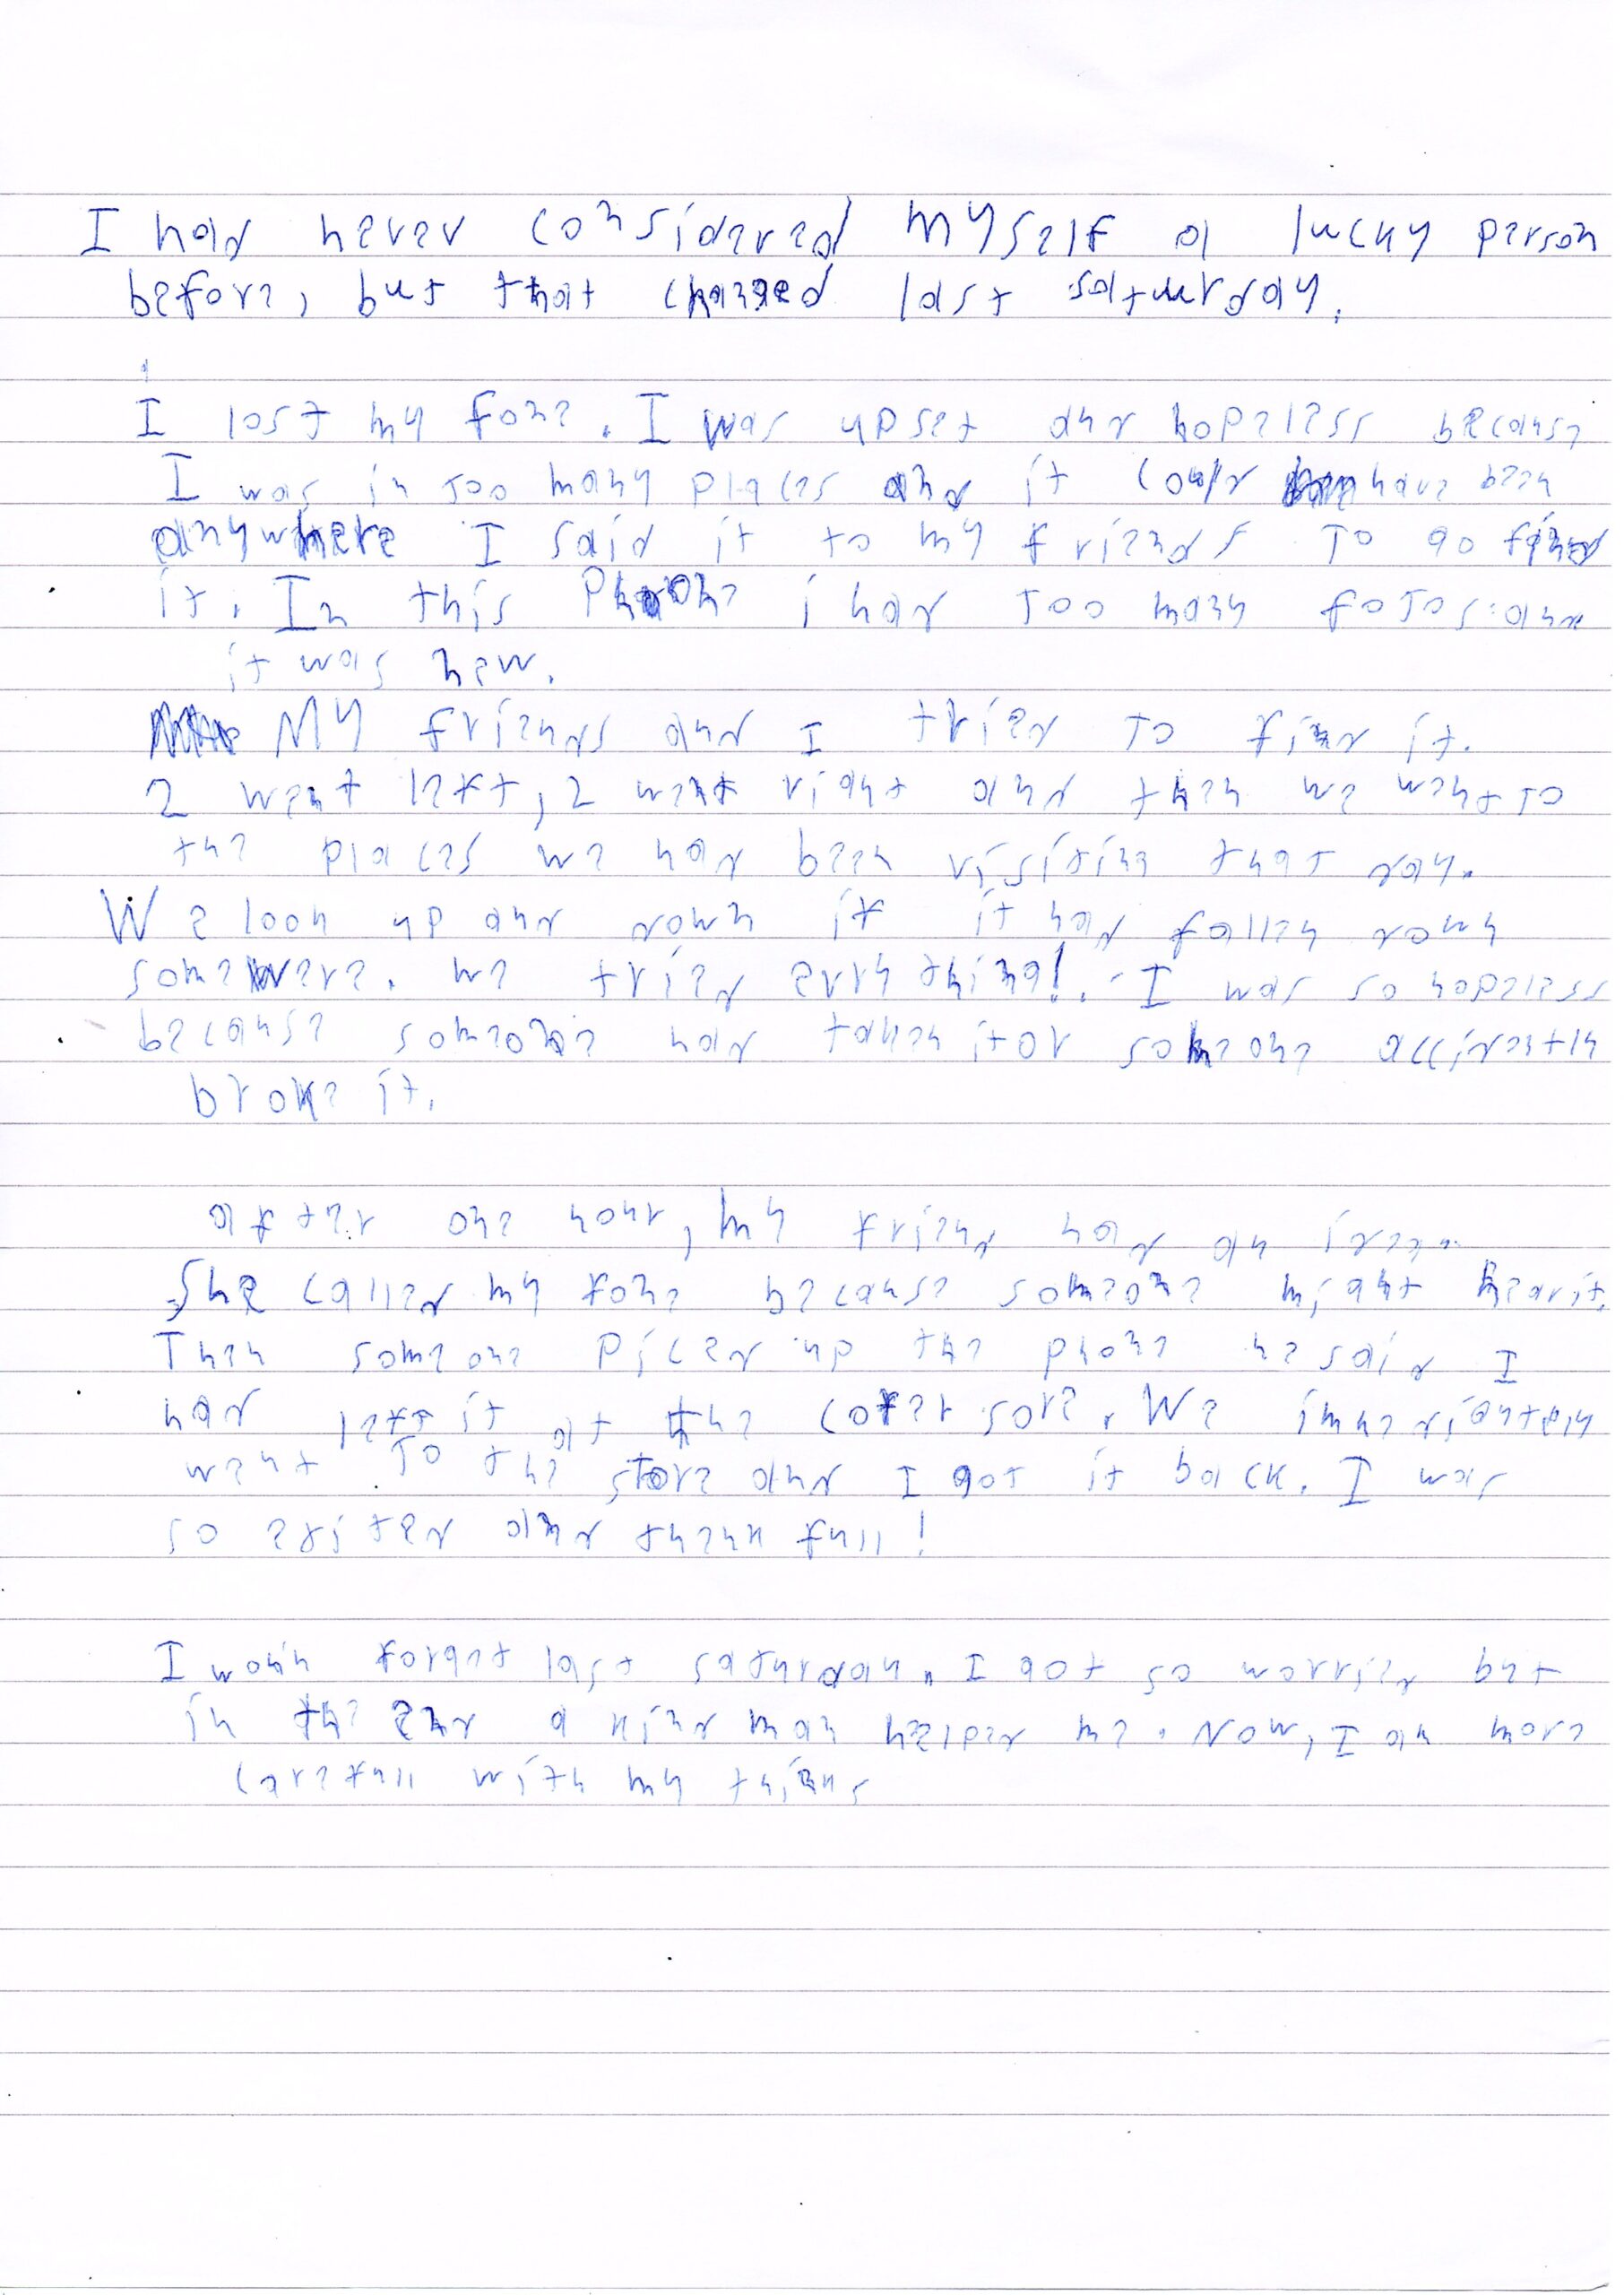 I had never considered myself a lucky person
before, but that changed last saturday.
I lost my fone. I was upset and hopeless because
I was in too many places and it could have been
anywhere I said it to my friends to go find
it. In this Phone i had too many fotos and
it was new.
My friends and I tried to find it.
2 went left, 2 went right and then we went to
the places we had been visiting that day.
We look up and down if it had fallen down
somewere. we tried evrything!. I was so hopeless
because someone had taken it or someone accidently
broke it.
after one hour, my friend had an idea..
She called my fone because someone might hear it.
Then someone piced up the phone he said I
had left it at the cofer sore. We
went To the store and I got it back. I was
so exited and thenk full!
I won'n forget last saturday. I got so worried but
in the end a kind man heelped me. Now, I am more
carefull with my